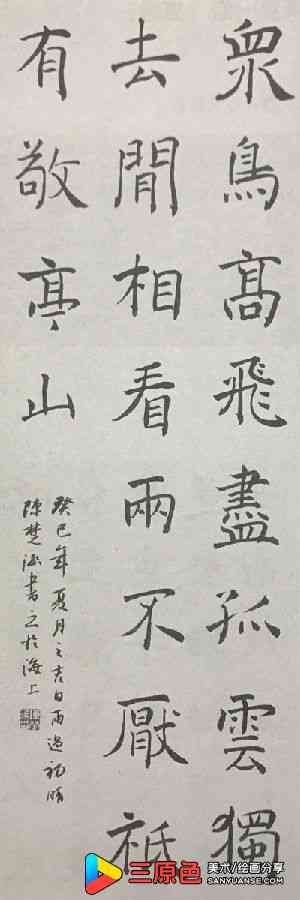 眾鳥髙飛盡孤雲獨
去閒相看兩不厭祇
有敬亭山
癸巳年夏月之吉日雨過初晴
陳楚書之於海上
三原色
美术/绘画分享
SANYUANSE.COM